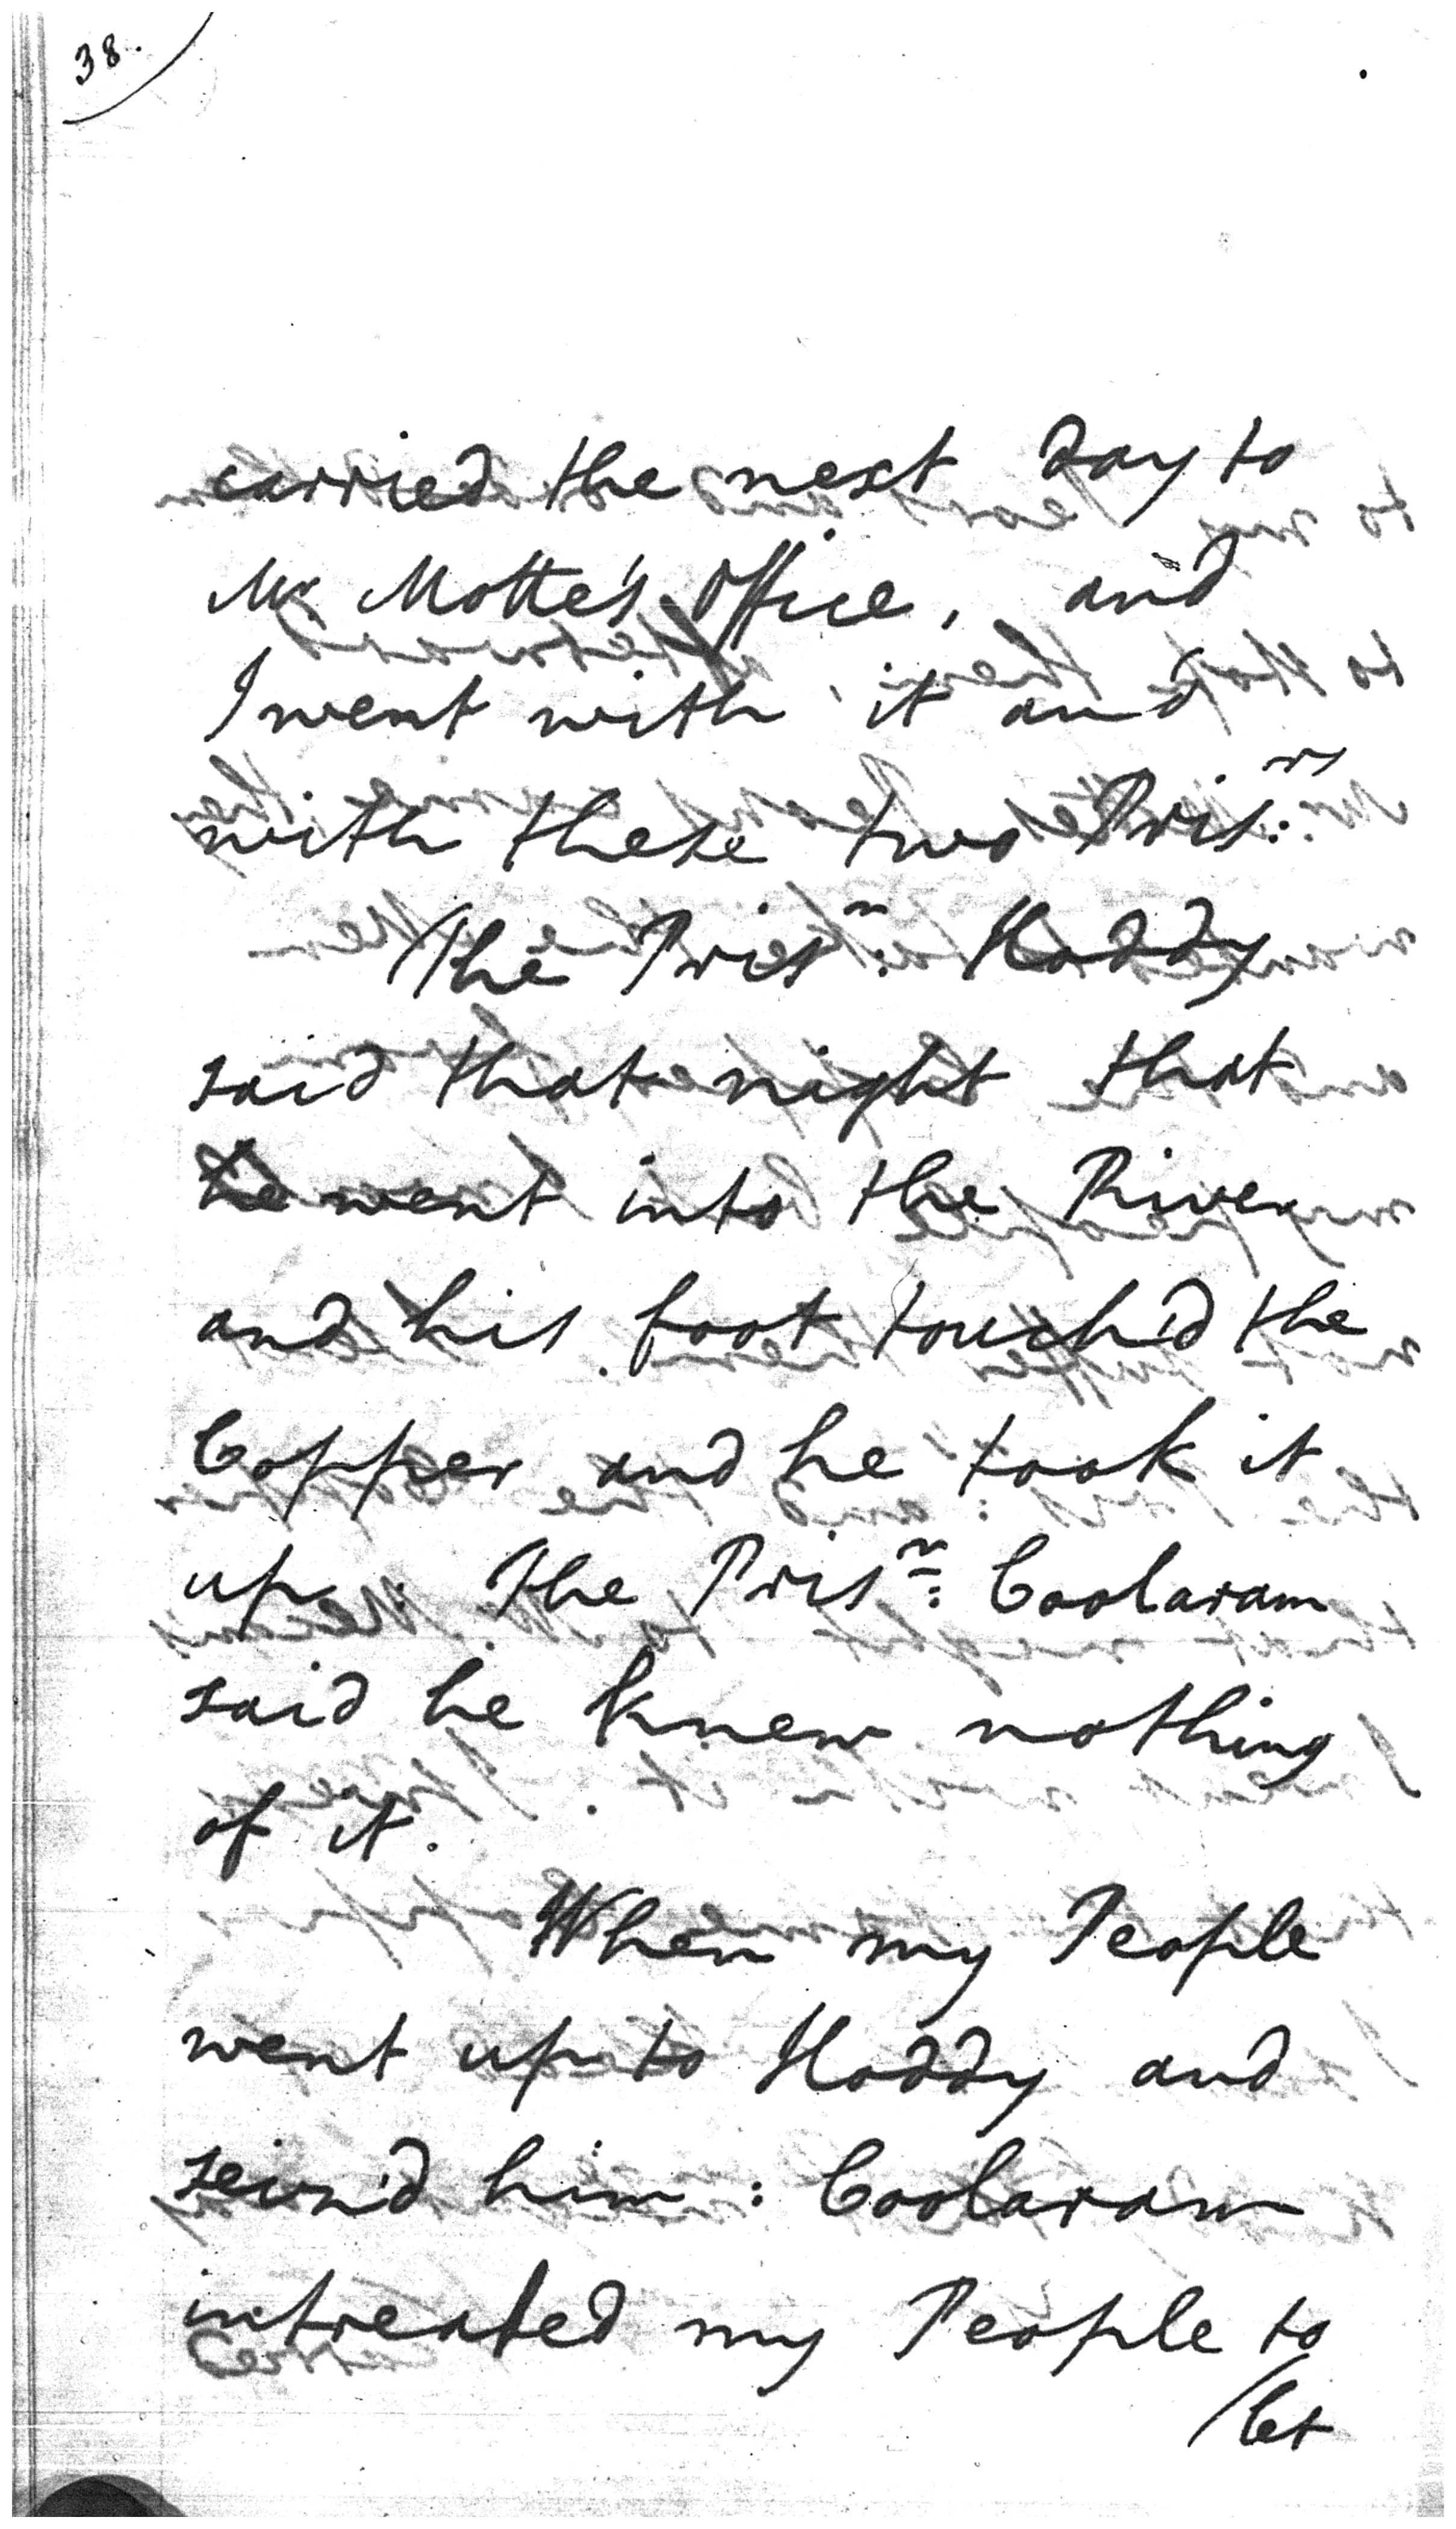 38.
carried the next day to
Mr Motte's Office, and
I went with it and
with these two Pris:rs
The Prisr: Hoddy
said that night that
he went into the River
and his foot touch'd the
Copper and he took it
up. The Prisr: Coolaram
said he knew nothing
of it.
When my People
went up to Hoddy and
seiz'd him: Coolaram
intreated my People to
let